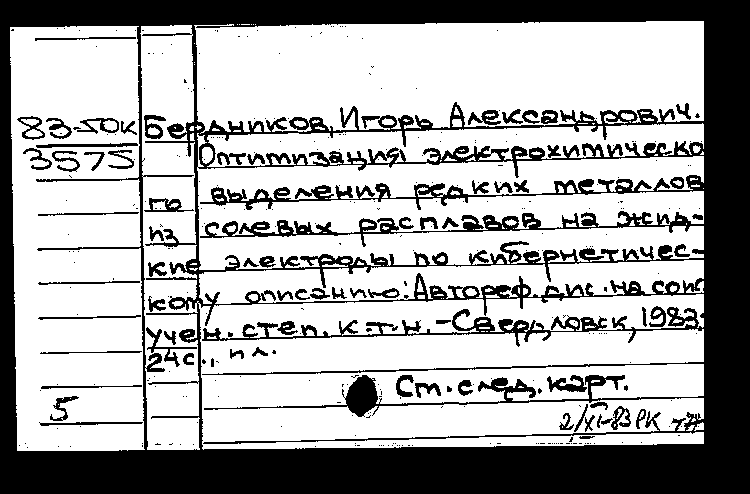 83-50к Бердников, Игорь Александрович.
3575 Оптимизация электрохимическо
го выделения редких металлов
из солевых расплавов на жид-
кие электроды по кибернетичес-
кому описанию: Автореф. дис. на соис
учен. степ. к.т.н. - Свердловск, 1983.
24с., ил.
Cт. след. карт.
5
2/XI-83 РК